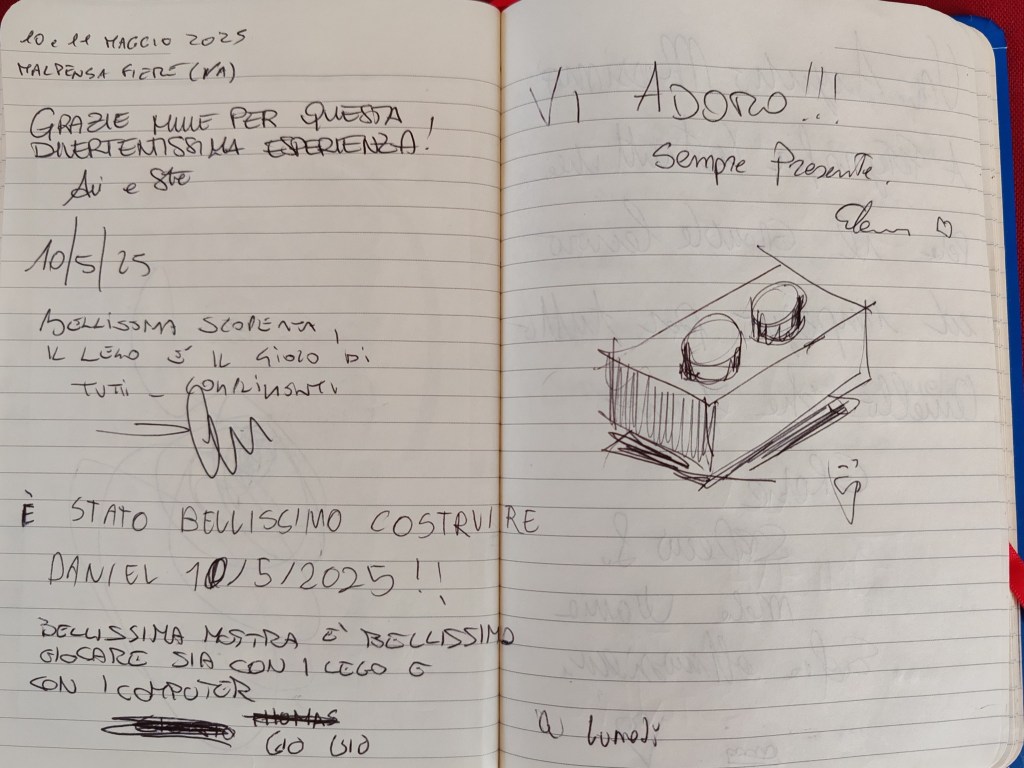 10 e 11 MAGGIO 2025
MALPENSA FIERE (VA)
GRAZIE MILLE PER QUESTA
DIVERTENTISSIMA ESPERIENZA!
e Ste
10/5/25
BELLISSIMA SCOPERTA,
IL LEGO È IL GIOCO DI
TUTTI - COMPLIMENTI
È STATO BELLISSIMO COSTRUIRE
DANIEL 10/5/2025!!
BELLISSIMA MOSTRA E' BELLISSIMO
GIOCARE SIA CON I LEGO E
CON I COMPUTER
THOMAS
GIO GIO
VI ADORO!!!
Sempre Presente.
Elena